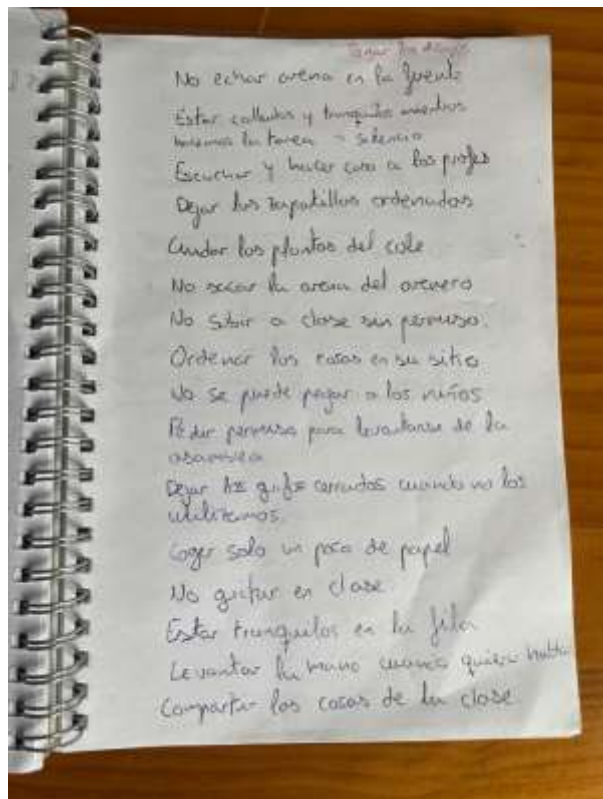 No echar arena en la fuente
Estar callados y tranquilos mientras
hacemos la tarea - silencio
Escuchar y hacer caso a los profes
Dejar las zapatillas ordenadas
Cuidar las plantas del cole
No sacar la arena del arenero
No subir a clase sin permiso.
Ordenar las cosas en su sitio
No se puede pegar a los niños
Pedir permiso para levantarse de la
asamblea
Dejar los grifos cerrados cuando no los
utilizamos.
Coger solo un poco de papel
No gritar en clase
Estar tranquilos en la fila
Levantar la mano cuando quiera hablar
Compartir las cosas de la clase.